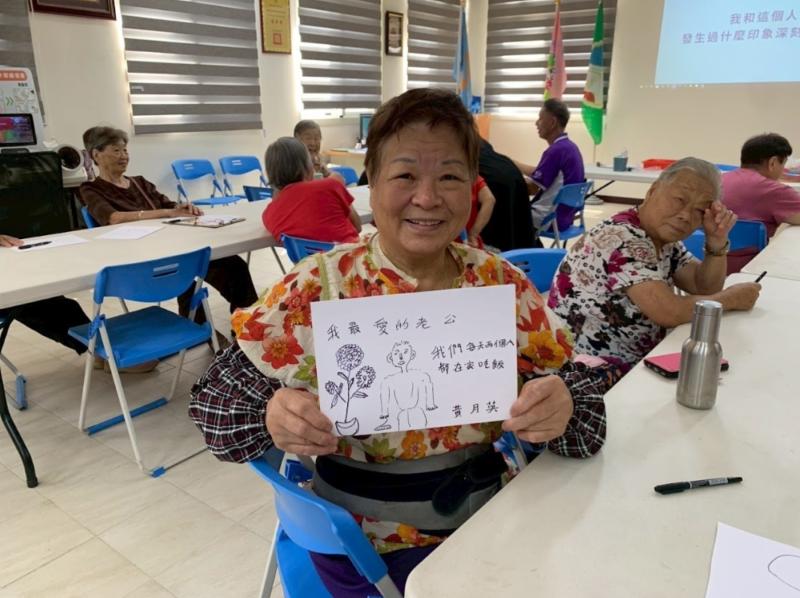 我和這個人
發生過什麼印象深刻
我最愛的老公
我們每天兩個人
都在家吃飯
黃月英